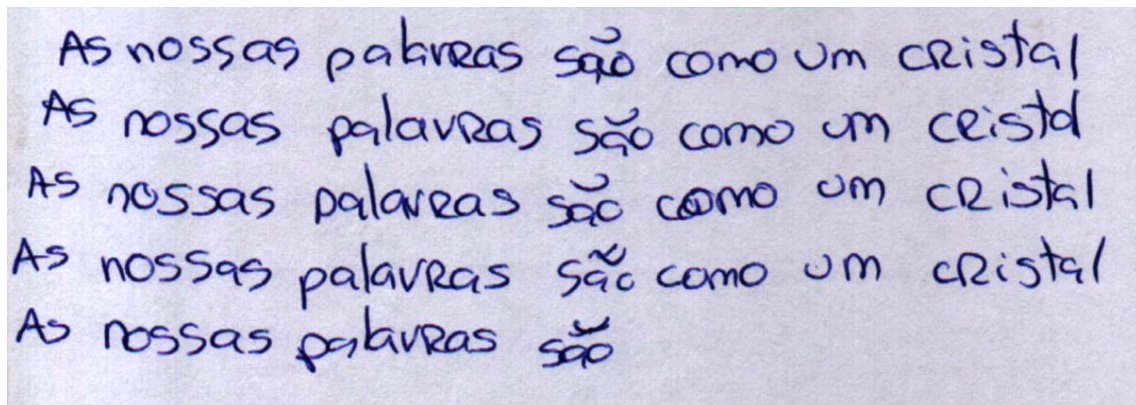 As nossas palavras são como um cristal
As nossas palavras são como um cristal
As nossas palavras são como um cristal
As nossas palavras são como um cristal
As nossas palavras são